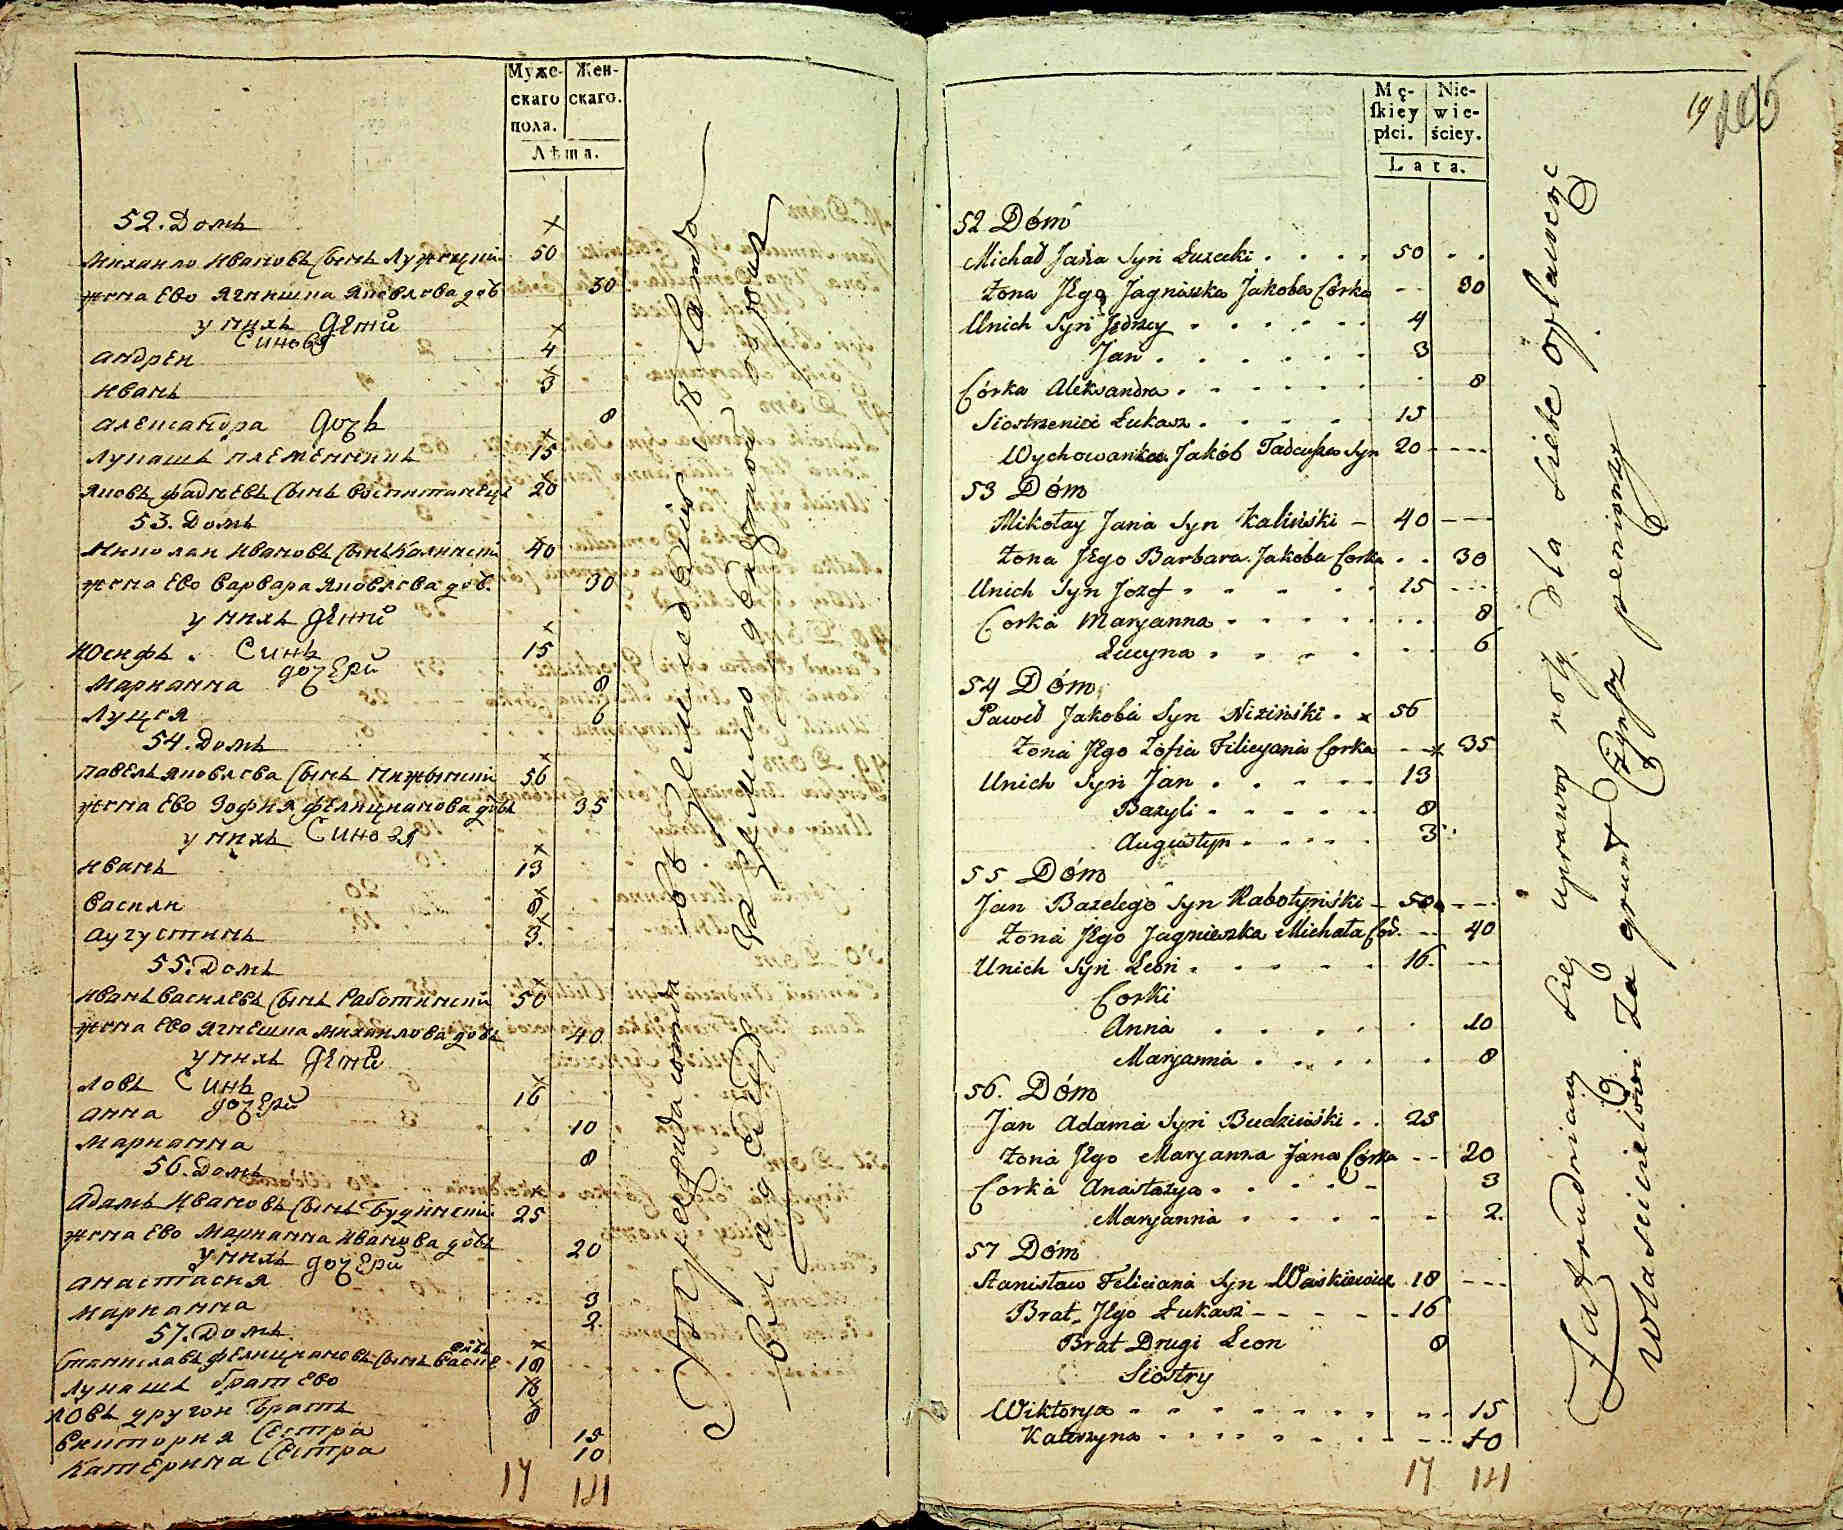 Муже-
скаго
пола.
Жен-
скаго.
Лѣта.
52. Домъ
Михаило Ивановъ Сынъ Лужецкий 50
жена Ево Ягнишка Яковлева доч 30
у нихъ дети
Синовя
Андрей 4
Иванъ 3
Александра дочь 8
Лукашъ племенникъ 15
Яковъ Фадѣевъ Сынъ воспитанецъ 20
53. Домъ
Николаи Ивановъ Сынъ Калинский 40
жена Ево Варвара Яковлева доч. 30
у нихъ дети
Юсифъ. Синъ 15
дочери
Марианна 8
Луция 6
54. Домъ
Павелъ Яковлева Сынъ Нижинский 56
жена Ево Зофия Фелицианова дочь 35
у нихъ Синовя
Иванъ 13
Василий 8
Аугустинъ 3.
55. Домъ
Иванъ Василевъ Сынъ Работинский 50
жена Ево Ягнешка Михаилова дочь 40
у нихъ дети
Левъ Синъ 16
дочери
Анна 10
Марианна 8
56. Домъ
Адамъ Ивановъ Сынъ Будинский 25
жена Ево Марианна Иванова дочь 20
у нихъ дочери
Анастасия 3
Марианна 2
57. Домъ
Станиславъ Фелициановъ Сынъ Васке 18
Лукашъ братъ Ево 16
Левъ другои братъ 8
Виктория Сестра 15
Катерина Сестра 10
17 141
Mę-
skiey
płci.
Nie-
wie-
ściey.
Lata.
19
52 Dóm
Michał Jana Syn Łuzecki 50
Żona Jego Jagniszka Jakoba Córka 30
Unich Syn Jędrzey 4
Jan 3
Córka Aleksandra 8
Siostrzenicc Łukasz 15
Wychowanica Jakób Tadeusza Syn 20
53 Dóm
Mikołay Jana Syn Kaliński 40
Żona Jego Barbara Jakoba Corka 30
Unich Syn Jozef 15
Corka Maryanna 8
Łucyna 6
54 Dóm
Paweł Jakoba Syn Niziński 56
Żona Jego Zofia Filicyana Corka 35
Unich Syn Jan 13
Bazyli 8
Augustyn 3
55 Dóm
Jan Bazelego Syn Rabotyński 50
Żona Jego Jagnieszka Michała Cor. 40
Unich Syn Leon 16
Corki
Anna 10
Maryanna 8
56. Dóm
Jan Adama Syn Budziński 25
Żona Jego Maryanna Jana Córka 20
Corka Anastazya 3
Maryanna 2
57 Dóm
Stanisław Feliciana Syn Waśkiewicz 18
Brat Jego Łukasz 16
Brat Drugi Leon 8
Siostry
Wiktorya 15
Katerzyna 10
17 141
Zatrudniaią się uprawą roły dla siebie opłaneząc
Właścicielowi za grunt Czynsz pieniężny